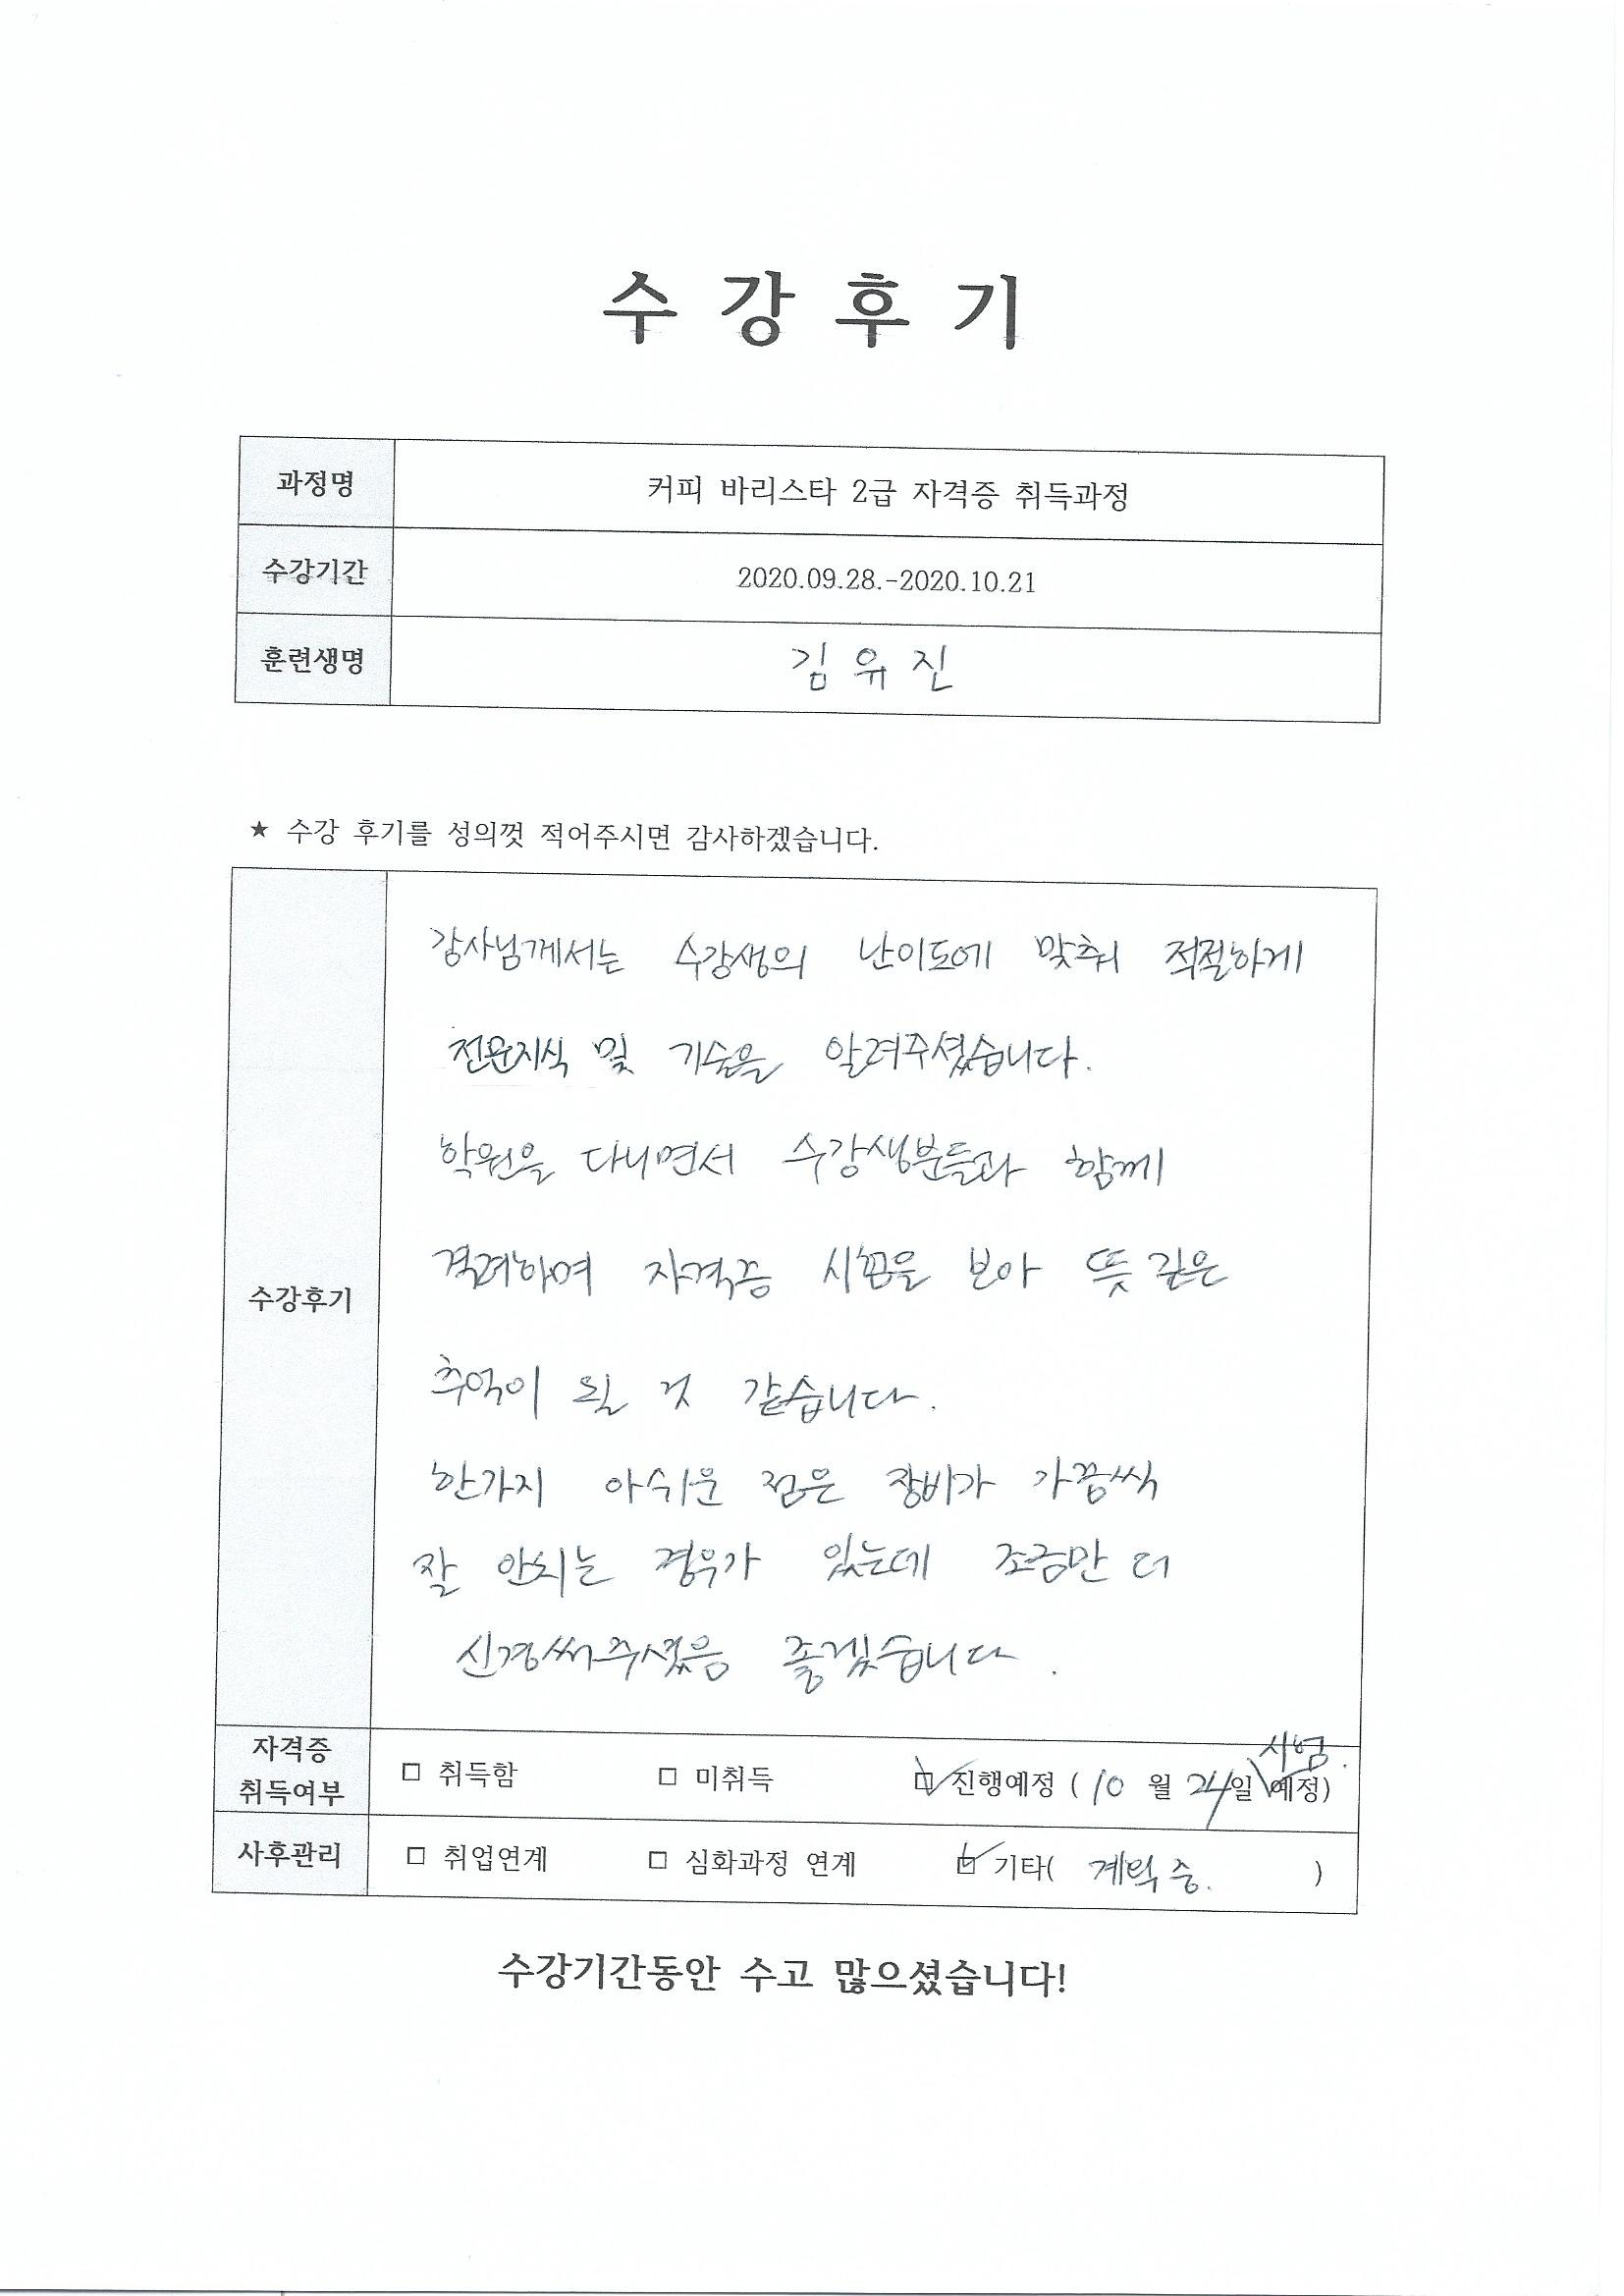 수 강 후 기
과정명 커피 바리스타 2급 자격증 취득과정
수강기간 2020.09.28.-2020.10.21
훈련생명 김 유 진
★ 수강 후기를 성의껏 적어주시면 감사하겠습니다.
수강후기
강사님께서는 수강생의 난이도에 맞춰 적절하게
전문지식 및 기술을 알려주셨습니다.
학원을 다니면서 수강생분들과 함께
격려하며 자격증 시험을 보아 뜻 깊은
추억이 될 것 같습니다.
한가지 아쉬운 점은 장비가 가끔씩
잘 안되는 경우가 있는데 조금만 더
신경써주셨음 좋겠습니다.
시험.
자격증 취득여부 □ 취득함 □ 미취득 ☑ 진행예정 ( 10 월 24일 예정)
사후관리 □ 취업연계 □ 심화과정 연계 ☑ 기타( 계획중. )
수강기간동안 수고 많으셨습니다!